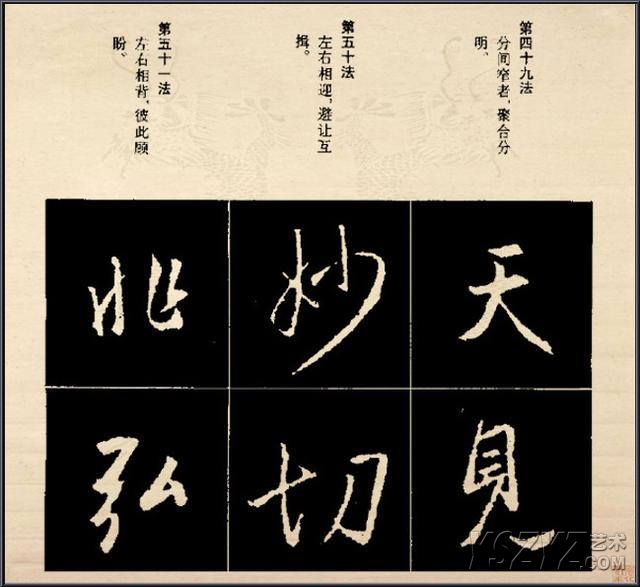 第四十九法
分间窄者，聚合分
明。
第五十法
左右相迎，避让互
揖。
第五十一法
左右相背，彼此顾
盼。
天
見
妙
切
兆
弘
YSZYZ艺术
.com